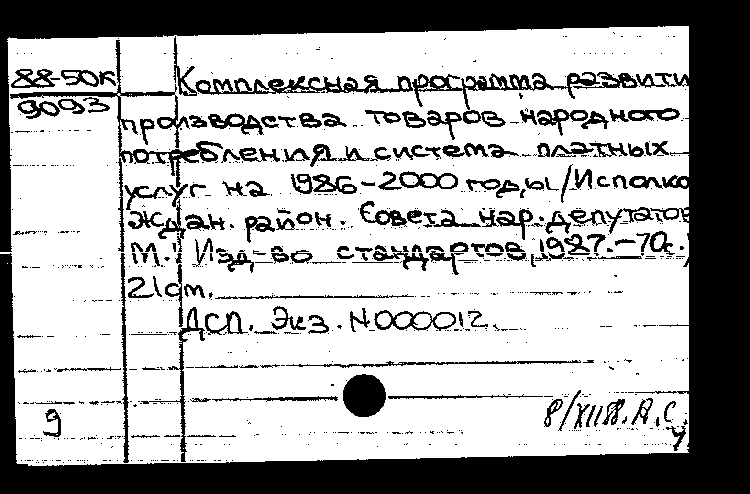 88-50к
9093
Комплексная программа развити
производства товаров народного
потребления и система платных
услуг на 1986-2000 годы / Исполко
Ждан. район. Совета нар. депутатов
М.: Изд-во стандартов, 1987. - 70с.;
21см.
ДСП. Экз. N000012.
9
8/XII88. А.С.